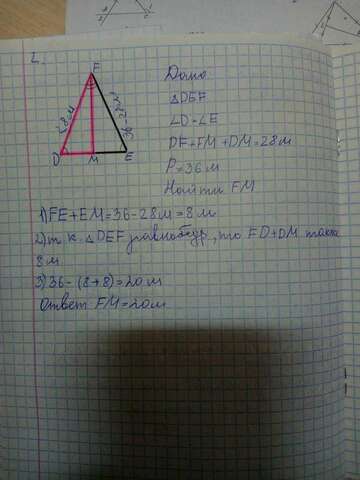 2.
F
28м
36-28м
D
M
E
Дано
△DEF
∠D-∠E
DF+FM+DM=28м
P=36м
Найти FM
1)FE+EM=36-28м=8м
2)т к. △DEF равнобур, то FD+DM такта
8м
3)36-(8+8)=20м
Ответ FM=20м